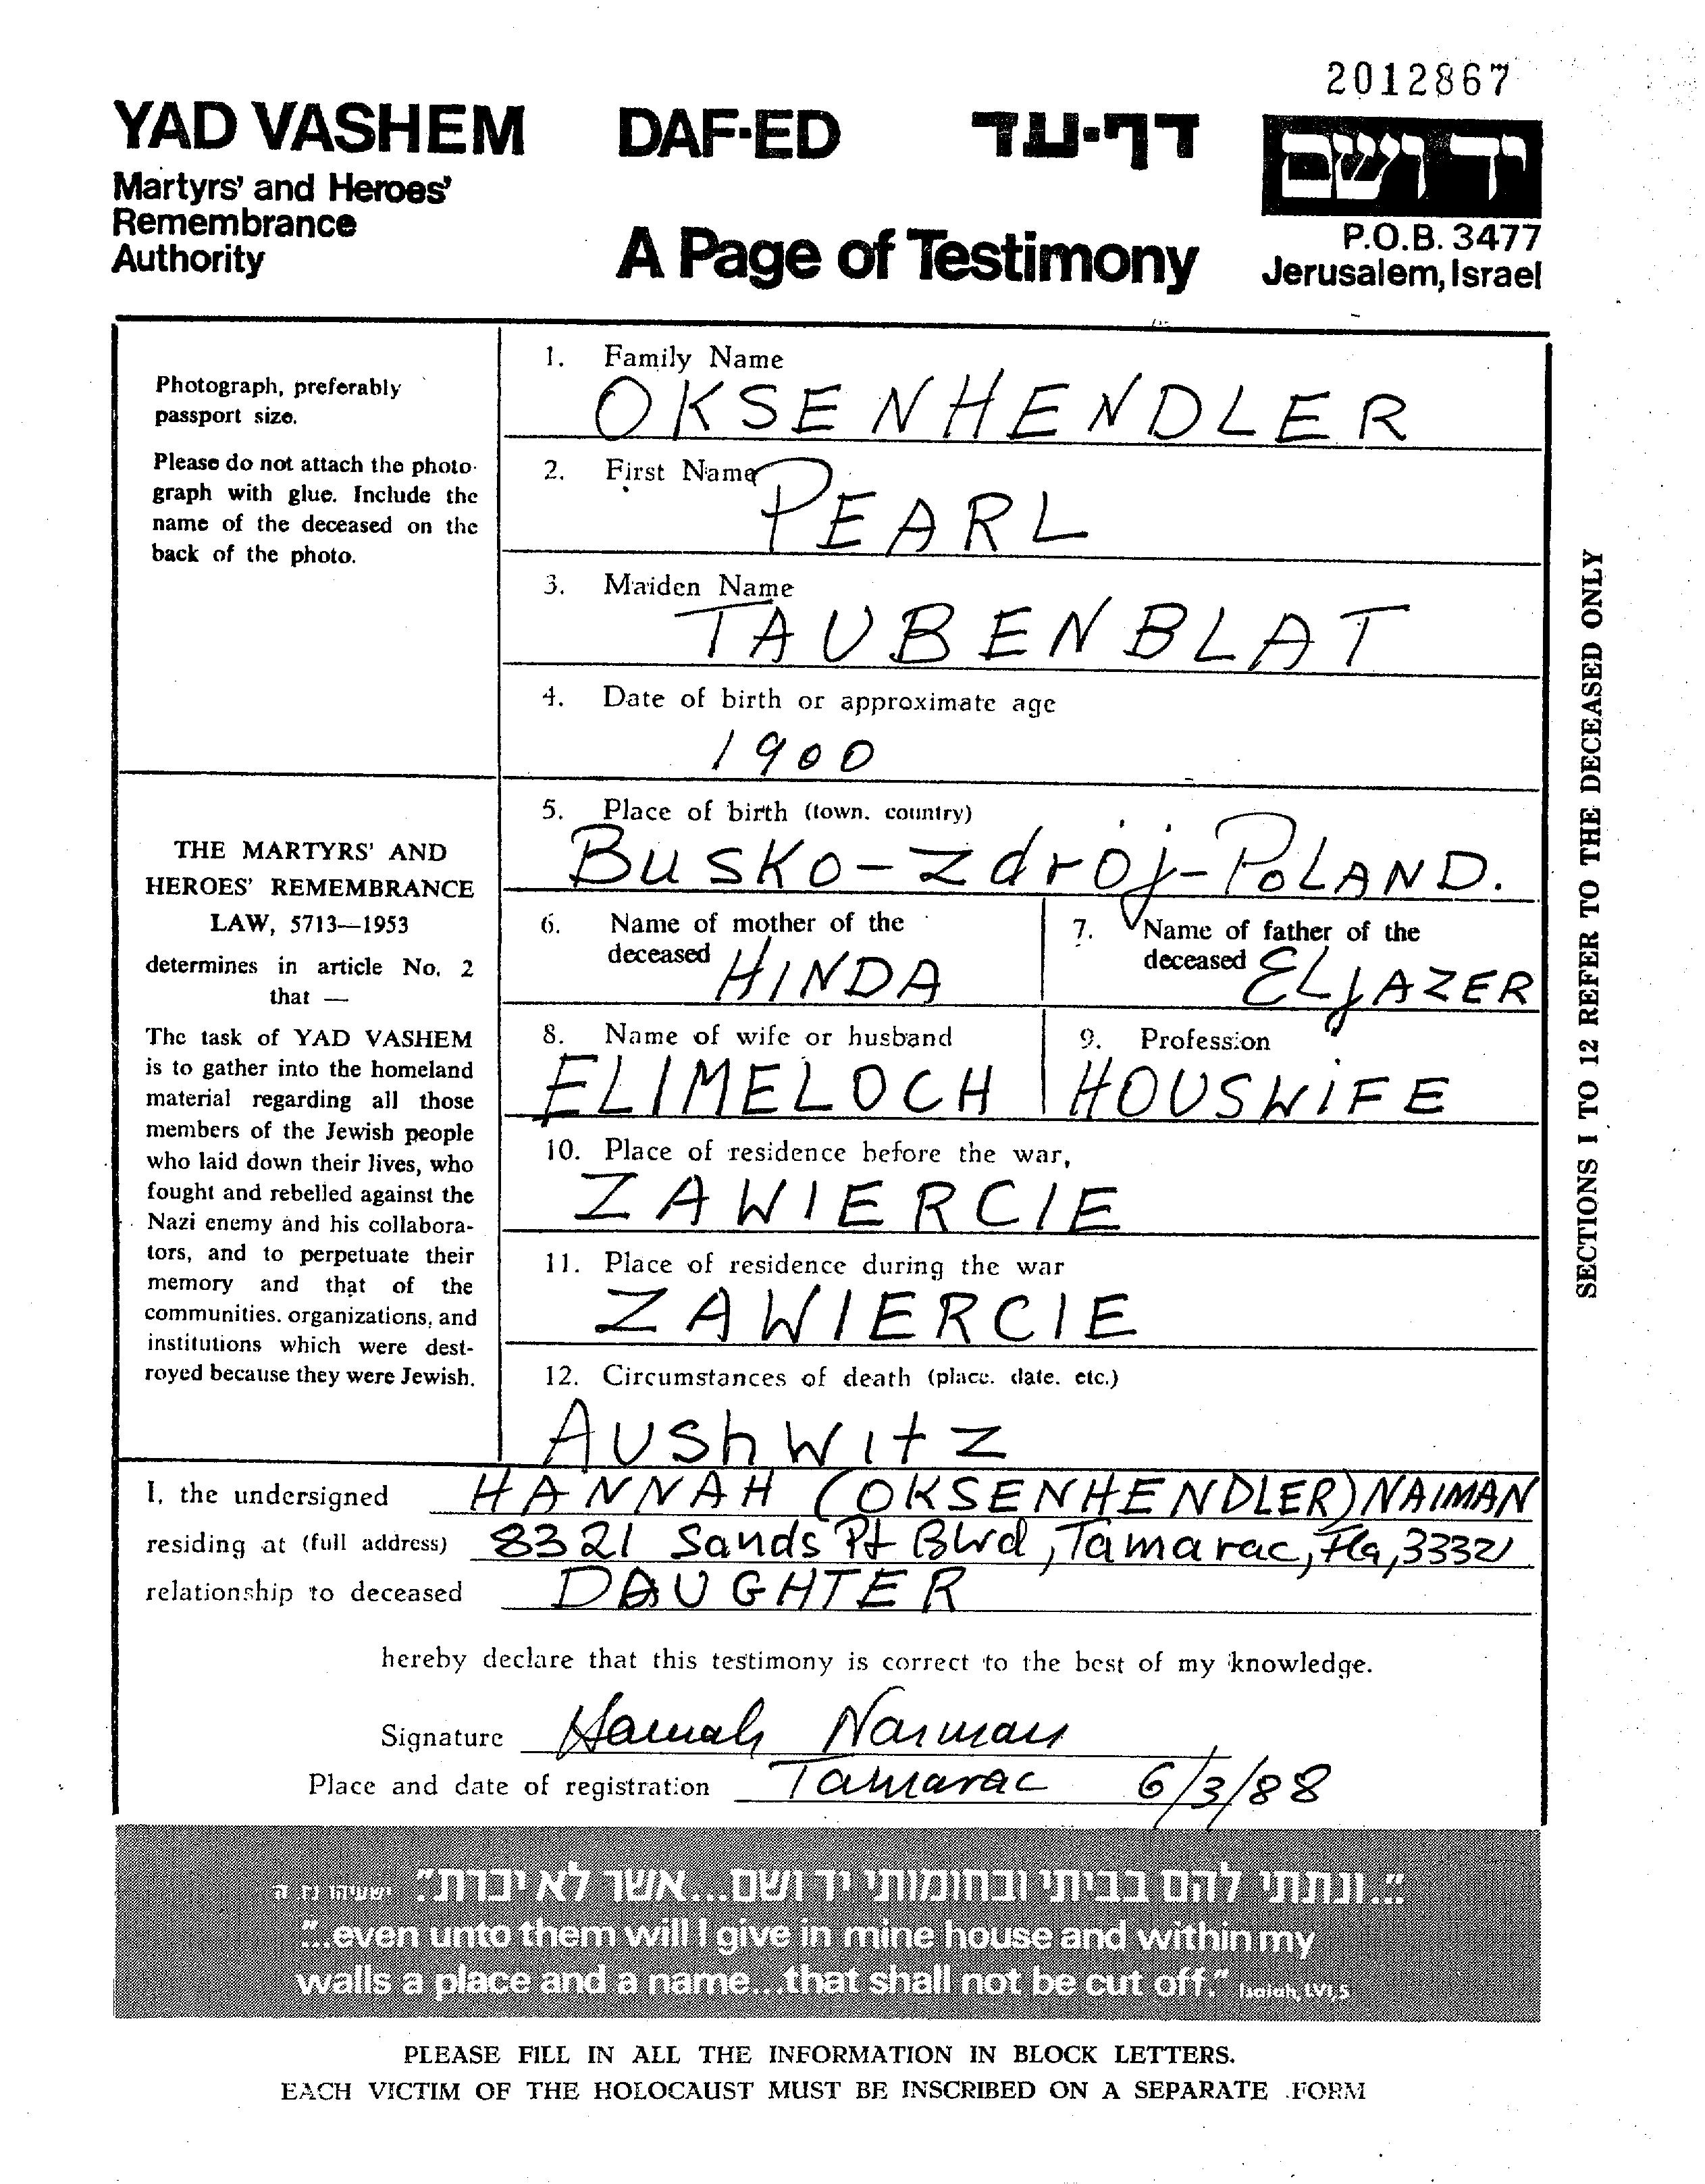 2012867
YAD VASHEM DAF-ED דף-עד יד ושם
Martyrs' and Heroes'
Remembrance
Authority
A Page of Testimony
P.O.B. 3477
Jerusalem, Israel
Photograph, preferably
passport size.
Please do not attach the photo-
graph with glue. Include the
name of the deceased on the
back of the photo.
THE MARTYRS' AND
HEROES' REMEMBRANCE
LAW, 5713—1953
determines in article No. 2
that —
The task of YAD VASHEM
is to gather into the homeland
material regarding all those
members of the Jewish people
who laid down their lives, who
fought and rebelled against the
Nazi enemy and his collabora-
tors, and to perpetuate their
memory and that of the
communities, organizations, and
institutions which were dest-
royed because they were Jewish.
1. Family Name
OKSENHENDLER
2. First Name
PEARL
3. Maiden Name
TAUBENBLAT
4. Date of birth or approximate age
1900
5. Place of birth (town, country)
Busko-Zdrój-POLAND.
6. Name of mother of the
deceased HINDA
7. Name of father of the
deceased ELJAZER
8. Name of wife or husband
ELIMELOCH
9. Profession
HOUSWIFE
10. Place of residence before the war,
ZAWIERCIE
11. Place of residence during the war
ZAWIERCIE
12. Circumstances of death (place, date, etc.)
AUShWitZ
SECTIONS 1 TO 12 REFER TO THE DECEASED ONLY
I, the undersigned HANNAH (OKSENHENDLER) NAIMAN
residing at (full address) 8321 Sands Pt Blvd, Tamarac, Fla, 33321
relationship to deceased DAUGHTER
hereby declare that this testimony is correct to the best of my knowledge.
Signature Hannah Naiman
Place and date of registration Tamarac 6/3/88
"...ונתתי להם בביתי ובחומותי יד ושם...אשר לא יכרת". ישעיהו נו, ה
"...even unto them will I give in mine house and within my
walls a place and a name...that shall not be cut off." Isaiah, LVI,5
PLEASE FILL IN ALL THE INFORMATION IN BLOCK LETTERS.
EACH VICTIM OF THE HOLOCAUST MUST BE INSCRIBED ON A SEPARATE FORM